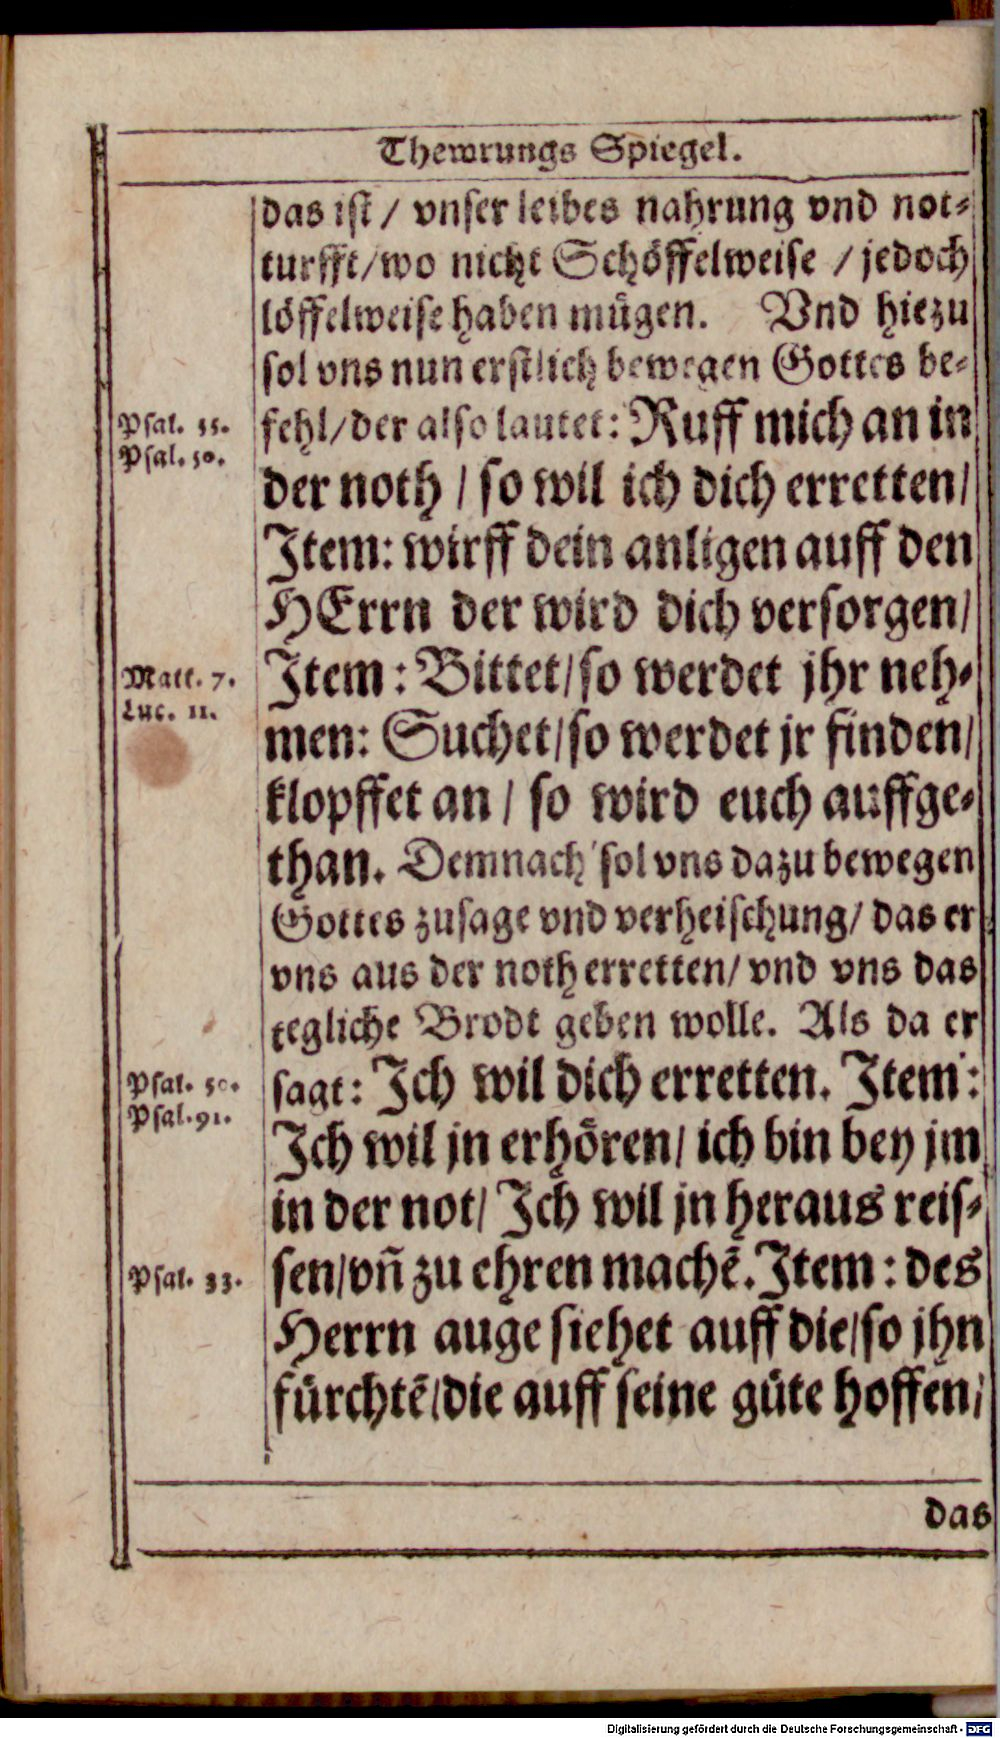 Thewrungs Spiegel.
das ist / vnser leibes nahrung vnd not-
turfft/wo nicht Schöffelweise / jedoch
löffelweise haben mügen. Vnd hiezu
sol vns nun erstlich bewegen Gottes be-
Psal. 55.
fehl/der also lautet: Ruff mich an in
Psal. 50.
der noth / so wil ich dich erretten/
Item: wirff dein anligen auff den
HErrn der wird dich versorgen/
Matt. 7.
Item: Bittet/so werdet jhr neh-
Luc. 11.
men: Suchet/so werdet jr finden/
klopffet an / so wird euch auffge-
than. Demnach sol vns dazu bewegen
Gottes zusage vnd verheischung/ das er
vns aus der noth erretten/ vnd vns das
tegliche Brodt geben wolle. Als da er
Psal. 50.
sagt: Ich wil dich erretten. Item:
Psal. 91.
Ich wil jn erhören/ ich bin bey jm
in der not/ Ich wil jn heraus reis-
Psal. 33.
sen/vñ zu ehren machẽ. Item: des
Herrn auge siehet auff die/so jhn
fürchtẽ/die auff seine güte hoffen/
das
Digitalisierung gefördert durch die Deutsche Forschungsgemeinschaft - DFG